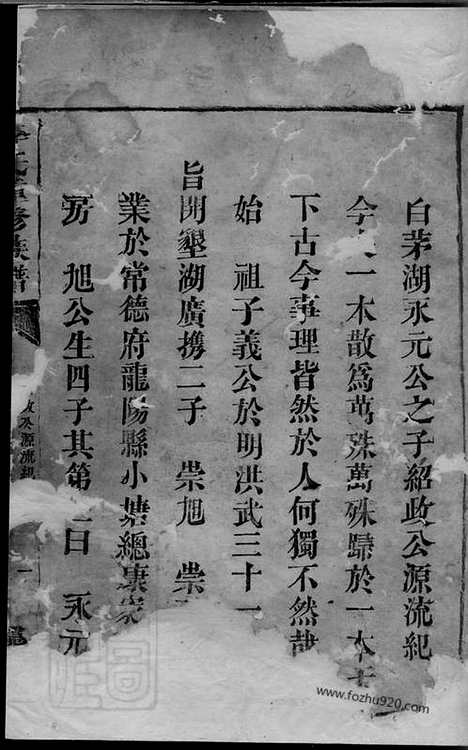 白茅湖永元公之子紹政公源流紀
今夫一木散爲萬殊萬殊歸於一本天
下古今事理皆然於人何獨不然哉
始 祖子義公於明洪武三十一
旨開墾湖廣携二子 崇旭 崇
業於常德府龍陽縣小塘總康家
旭公生四子其第二曰 永元
氏重修族譜
政公源流紀
一
www.fozhu920.com